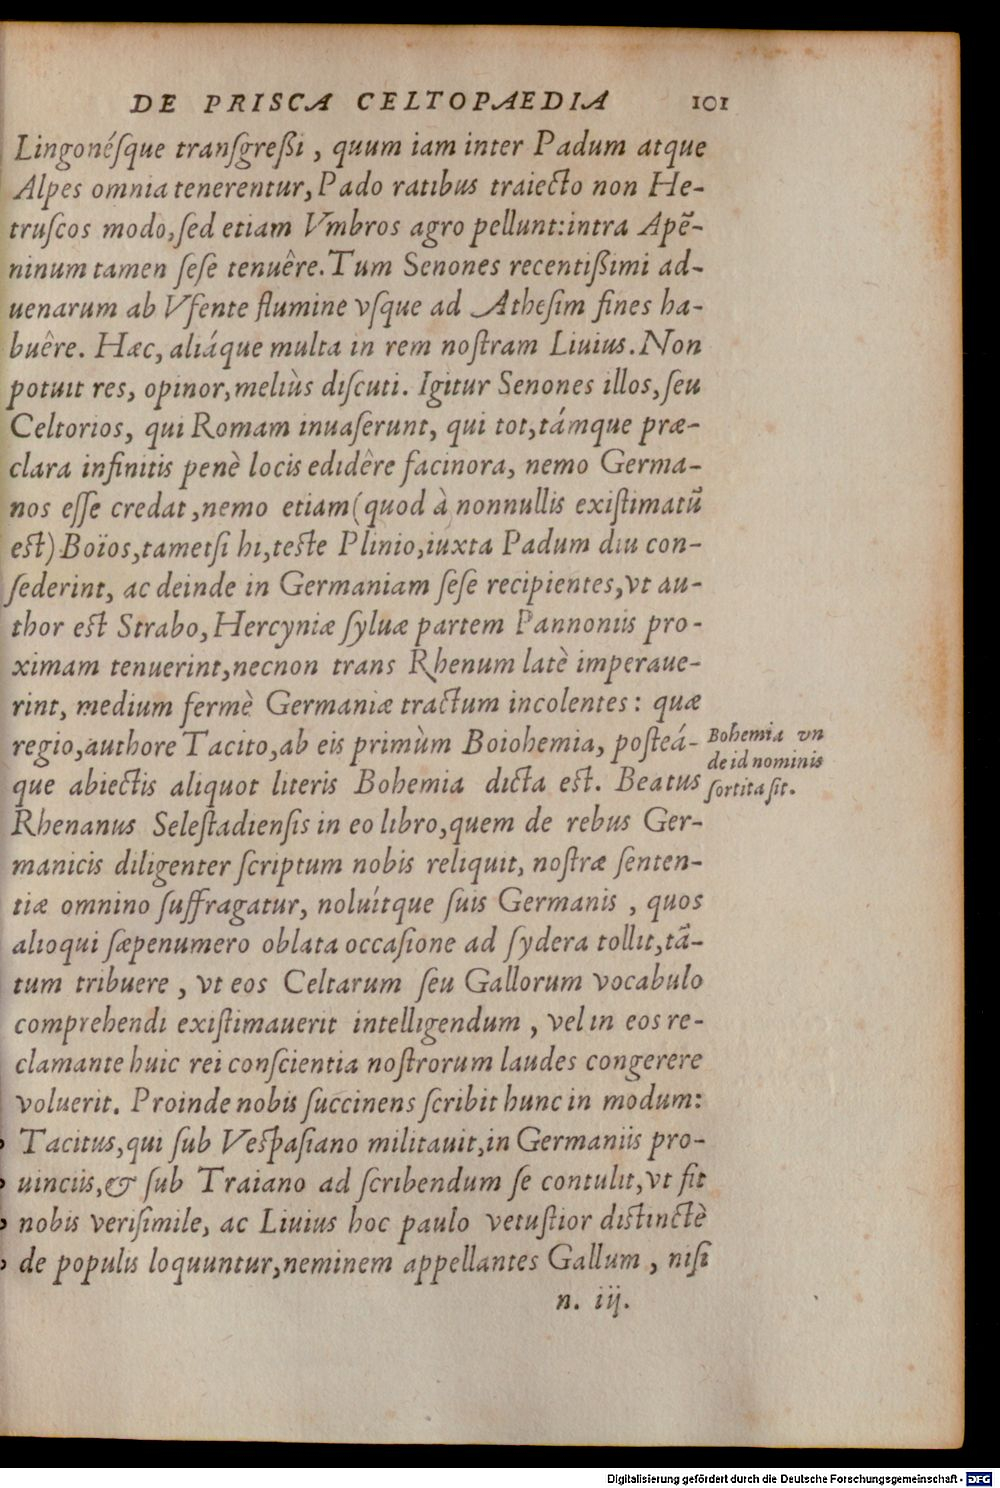 DE PRISCA CELTOPAEDIA 101
Lingonésque transgreßi, quum iam inter Padum atque
Alpes omnia tenerentur, Pado ratibus traiecto non He-
truſcos modo, ſed etiam Vmbros agro pellunt: intra Apẽ-
ninum tamen ſeſe tenuêre. Tum Senones recentißimi ad-
uenarum ab Vfente flumine vſque ad Atheſim fines ha-
buêre. Hæc, aliáque multa in rem noſtram Liuius. Non
potuit res, opinor, meliùs diſcuti. Igitur Senones illos, ſeu
Celtorios, qui Romam inuaſerunt, qui tot, támque præ-
clara infinitis penè locis edidêre facinora, nemo Germa-
nos eſſe credat, nemo etiam (quod à nonnullis exiſtimatũ
eſt) Boïos, tametſi hi, teſte Plinio, iuxta Padum diu con-
ſederint, ac deinde in Germaniam ſeſe recipientes, vt au-
thor eſt Strabo, Hercyniæ ſyluæ partem Pannoniis pro-
ximam tenuerint, necnon trans Rhenum latè imperaue-
rint, medium fermè Germaniæ tractum incolentes: quæ
regio, authore Tacito, ab eis primùm Boiohemia, poſteá-
que abiectis aliquot literis Bohemia dicta eſt. Beatus
Bohemia vn
de id nominis
ſortita ſit.
Rhenanus Seleſtadienſis in eo libro, quem de rebus Ger-
manicis diligenter ſcriptum nobis reliquit, noſtræ ſenten-
tiæ omnino ſuffragatur, noluítque ſuis Germanis, quos
alioqui ſæpenumero oblata occaſione ad ſydera tollit, tã-
tum tribuere, vt eos Celtarum ſeu Gallorum vocabulo
comprehendi exiſtimauerit intelligendum, vel in eos re-
clamante huic rei conſcientia noſtrorum laudes congerere
voluerit. Proinde nobis ſuccinens ſcribit hunc in modum:
Tacitus, qui ſub Veſpaſiano militauit, in Germaniis pro-
uinciis, & ſub Traiano ad ſcribendum ſe contulit, vt fit
nobis veriſimile, ac Liuius hoc paulo vetuſtior diſtinctè
de populis loquuntur, neminem appellantes Gallum, niſi
n. iij.
Digitalisierung gefördert durch die Deutsche Forschungsgemeinschaft - DFG